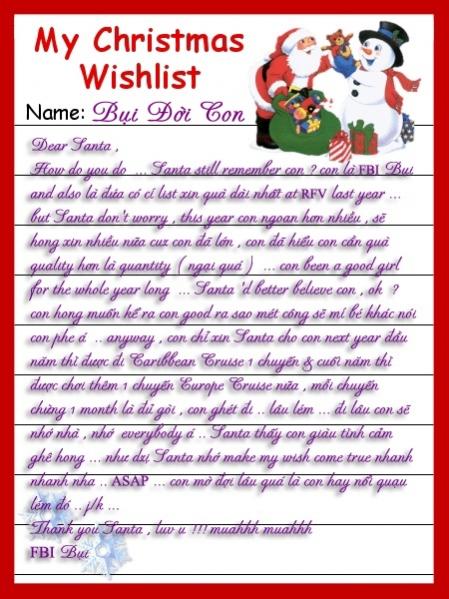 My Christmas
Wishlist
Name: Bụi Đời Con
Dear Santa ,
How do you do ... Santa still remember con ? con là FBI Bụi
and also là đứa có cí list xin quà dài nhất at RFV last year ...
but Santa don't worry , this year con ngoan hơn nhiều , sẽ
hong xin nhiều nữa cuz con đã lớn , con đã hiểu con cần quà
quality hơn là quantity ( ngại quá ) ... con been a good girl
for the whole year long ... Santa 'd better believe con , ok ?
con hong muốn kể ra con good ra sao mét công sẽ mí bé khác nói
con phe á .. anyway , con chỉ xin Santa cho con next year đầu
năm thì được đi Caribbean Cruise 1 chuyến & cuối năm thì
được chơi thêm 1 chuyến Europe Cruise nữa , mỗi chuyến
chừng 1 month là đủ gòi , con ghét đi .. lâu lém ... đi lâu con sẽ
nhớ nhà , nhớ everybody á .. Santa thấy con giàu tình cảm
ghê hong ... như dzị Santa nhớ make my wish come true nhanh
nhanh nha .. ASAP ... con mờ đợi lâu quá là con hay nổi quạu
lém đó .. j/k ...
Thank you Santa , luv u !!! muahhh muahhh
FBI Bụi